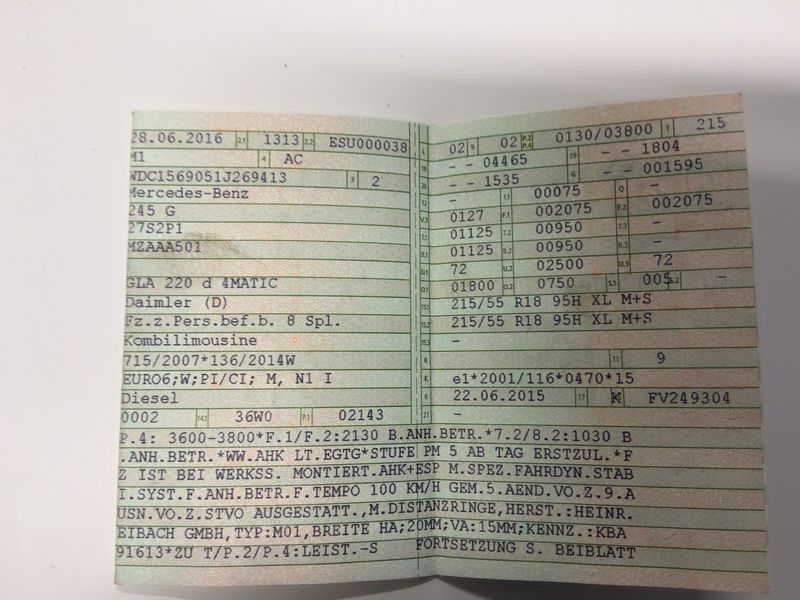 28.06.2016 2.1 1313 2.2 ESU000038
M1 4 AC
WDC1569051J269413 3 2
Mercedes-Benz
245 G
27S2P1
MZAAA501
GLA 220 d 4MATIC
Daimler (D)
Fz.z.Pers.bef.b. 8 Spl.
Kombilimousine
715/2007*136/2014W
EURO6;W;PI/CI; M, N1 I
Diesel
0002 14.1 36W0 P.1 02143
L 02 9 02 P.2 P.4 0130/03800 T 215
18 - - 04465 19 - - 1804
20 - - 1535 G - - 001595
12 - 13 00075 Q -
V.7 0127 F.1 002075 F.2 002075
7.1 01125 7.2 00950 7.3 -
8.1 01125 8.2 00950 8.3 -
U.1 72 U.2 02500 U.3 72
O.1 01800 O.2 0750 S.1 005 S.2 -
15.1 215/55 R18 95H XL M+S
15.2 215/55 R18 95H XL M+S
15.3 -
R 11 9
K e1*2001/116*0470*15
6 22.06.2015 17 K FV249304
21 -
P.4: 3600-3800*F.1/F.2:2130 B.ANH.BETR.*7.2/8.2:1030 B
.ANH.BETR.*WW.AHK LT.EGTG*STUFE PM 5 AB TAG ERSTZUL.*F
Z IST BEI WERKSS. MONTIERT.AHK+ESP M.SPEZ.FAHRDYN.STAB
I.SYST.F.ANH.BETR.F.TEMPO 100 KM/H GEM.5.AEND.VO.Z.9.A
USN.VO.Z.STVO AUSGESTATT.,M.DISTANZRINGE,HERST.:HEINR.
EIBACH GMBH,TYP:M01,BREITE HA;20MM;VA:15MM;KENNZ.:KBA
91613*ZU T/P.2/P.4:LEIST.-S FORTSETZUNG S. BEIBLATT